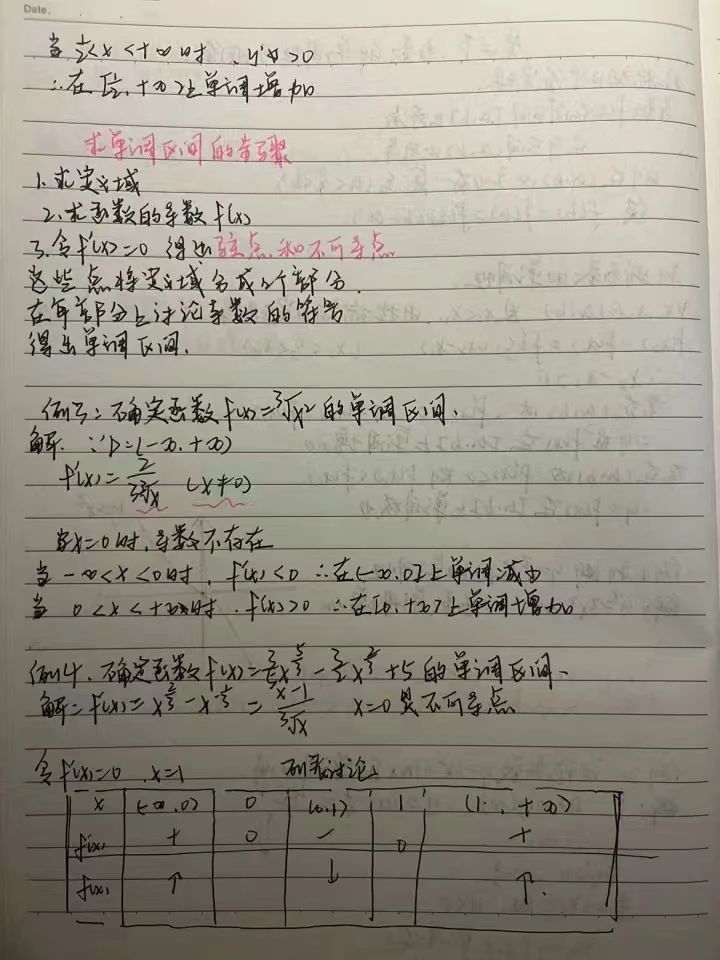 Date.
当 1/2<x<+∞时, y'>0
∴在[1/2, +∞)上单调增加
求单调区间的步骤
1. 求定义域
2. 求函数的导数f'(x)
3. 令f'(x)=0 得出驻点和不可导点
这些点将定义域分成若干个部分.
在每部分上讨论导数的符号
得出单调区间.
例3: 确定函数f(x)=³√x² 的单调区间.
解. ∵D=(-∞.+∞)
f'(x)=2/(3³√x) (x≠0)
当x=0时, 导数不存在
当 -∞<x<0时, f'(x)<0 ∴在(-∞,0]上单调减少
当 0<x<+∞时. f'(x)>0 ∴在[0, +∞)上单调增加
例4. 确定函数f(x)=3/5x^5/3 - 3/2x^2/3+5 的单调区间.
解: f'(x)=x^2/3-x^-1/3 = (x-1)/³√x x=0是不可导点
令f'(x)=0 .x=1 列表讨论
x (-∞,0) 0 (0,1) 1 (1, +∞)
f'(x) + 0 - 0 +
f(x) ↑ ↓ ↑.